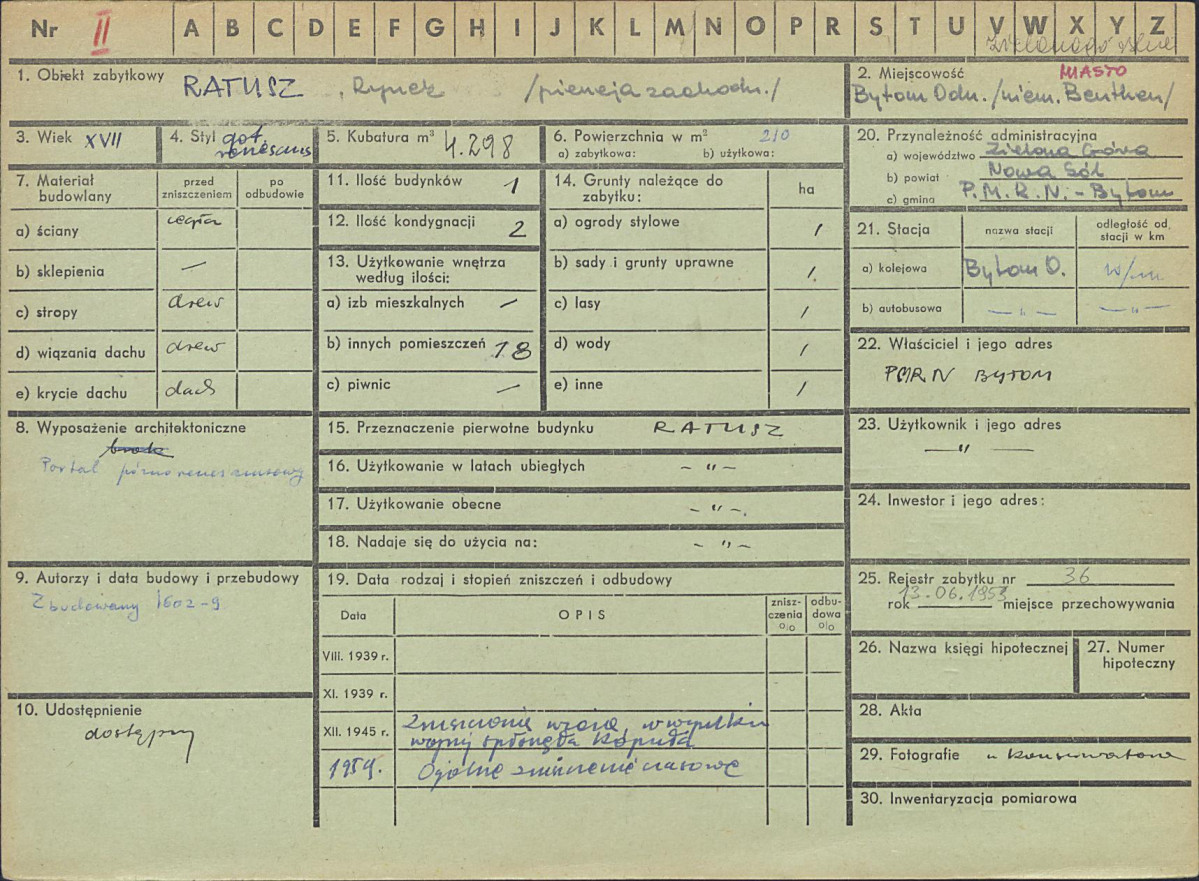 Nr II A B C D E F G H I J K L M N O P R S T U V W X Y Z
1. Obiekt zabytkowy RATUSZ, Rynek /pierzeja zachodn./
2. Miejscowość MIASTO
Bytom Odrz. /niem. Beuthen/
3. Wiek XVII
4. Styl got. renesans
5. Kubatura m³ 4.298
6. Powierzchnia w m² 210
a) zabytkowa: b) użytkowa:
7. Materiał budowlany
przed zniszczeniem
po odbudowie
a) ściany cegła
b) sklepienia —
c) stropy drew
d) wiązania dachu drew
e) krycie dachu dach
8. Wyposażenie architektoniczne
Portal późno renesansowy
9. Autorzy i data budowy i przebudowy
Zbudowany 1602-9
10. Udostępnienie
dostępny
11. Ilość budynków 1
12. Ilość kondygnacji 2
13. Użytkowanie wnętrza według ilości:
a) izb mieszkalnych —
b) innych pomieszczeń 18
c) piwnic —
14. Grunty należące do zabytku: ha
a) ogrody stylowe /
b) sady i grunty uprawne /
c) lasy /
d) wody /
e) inne /
15. Przeznaczenie pierwotne budynku RATUSZ
16. Użytkowanie w latach ubiegłych – " –
17. Użytkowanie obecne – " –
18. Nadaje się do użycia na: – " –
19. Data rodzaj i stopień zniszczeń i odbudowy
Data OPIS zniszczenia o/o odbudowa o/o
VIII. 1939 r.
XI. 1939 r.
XII. 1945 r. Zniszczenie wojną, w wyniku
wojny spłonęła kopuła
1959. Ogólne zniszczenie czasowe
20. Przynależność administracyjna
a) województwo Zielona Góra
b) powiat Nowa Sól
c) gmina P.M.R.N. - Bytom
21. Stacja nazwa stacji odległość od stacji w km
a) kolejowa Bytom O.
b) autobusowa — " — — " —
22. Właściciel i jego adres
PMRN BYTOM
23. Użytkownik i jego adres
— " —
24. Inwestor i jego adres:
25. Rejestr zabytku nr 36
rok 13.06.1953 miejsce przechowywania
26. Nazwa księgi hipotecznej
27. Numer hipoteczny
28. Akta
29. Fotografie u konserwatora
30. Inwentaryzacja pomiarowa